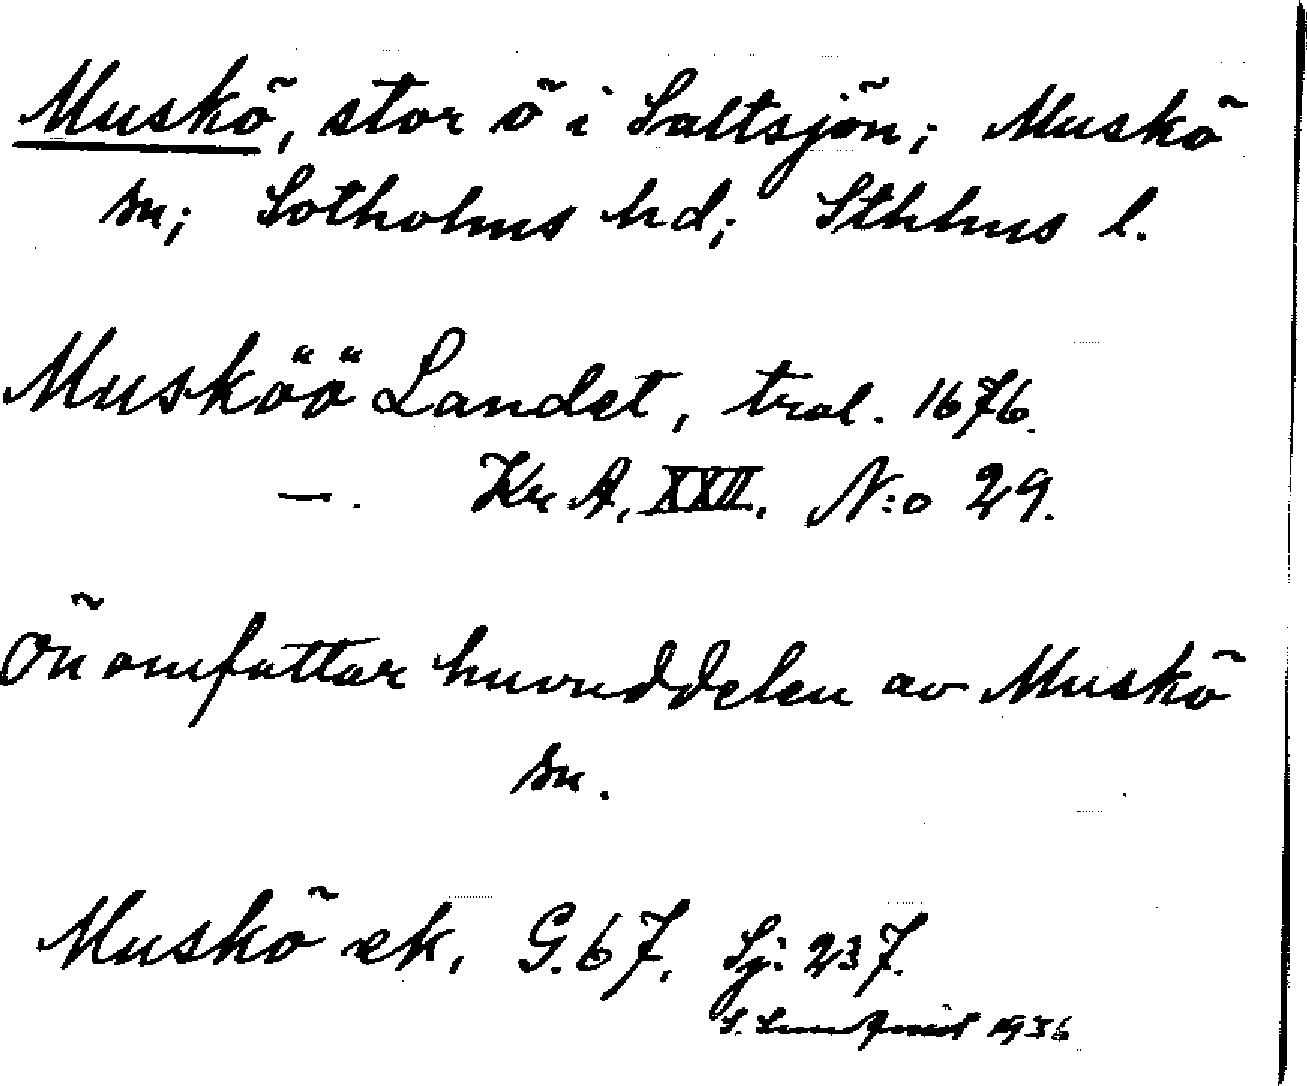 Muskö, stor ö i Saltsjön; Muskö
sn; Sotholms hd; Sthlms l.
Musköö Landet, trol. 1676.
—. Kr A. XXII. N:o 29.
Ön omfattar huvuddelen av Muskö
sn.
Muskö ek. G. 67. Sj: 237.
S. 1936